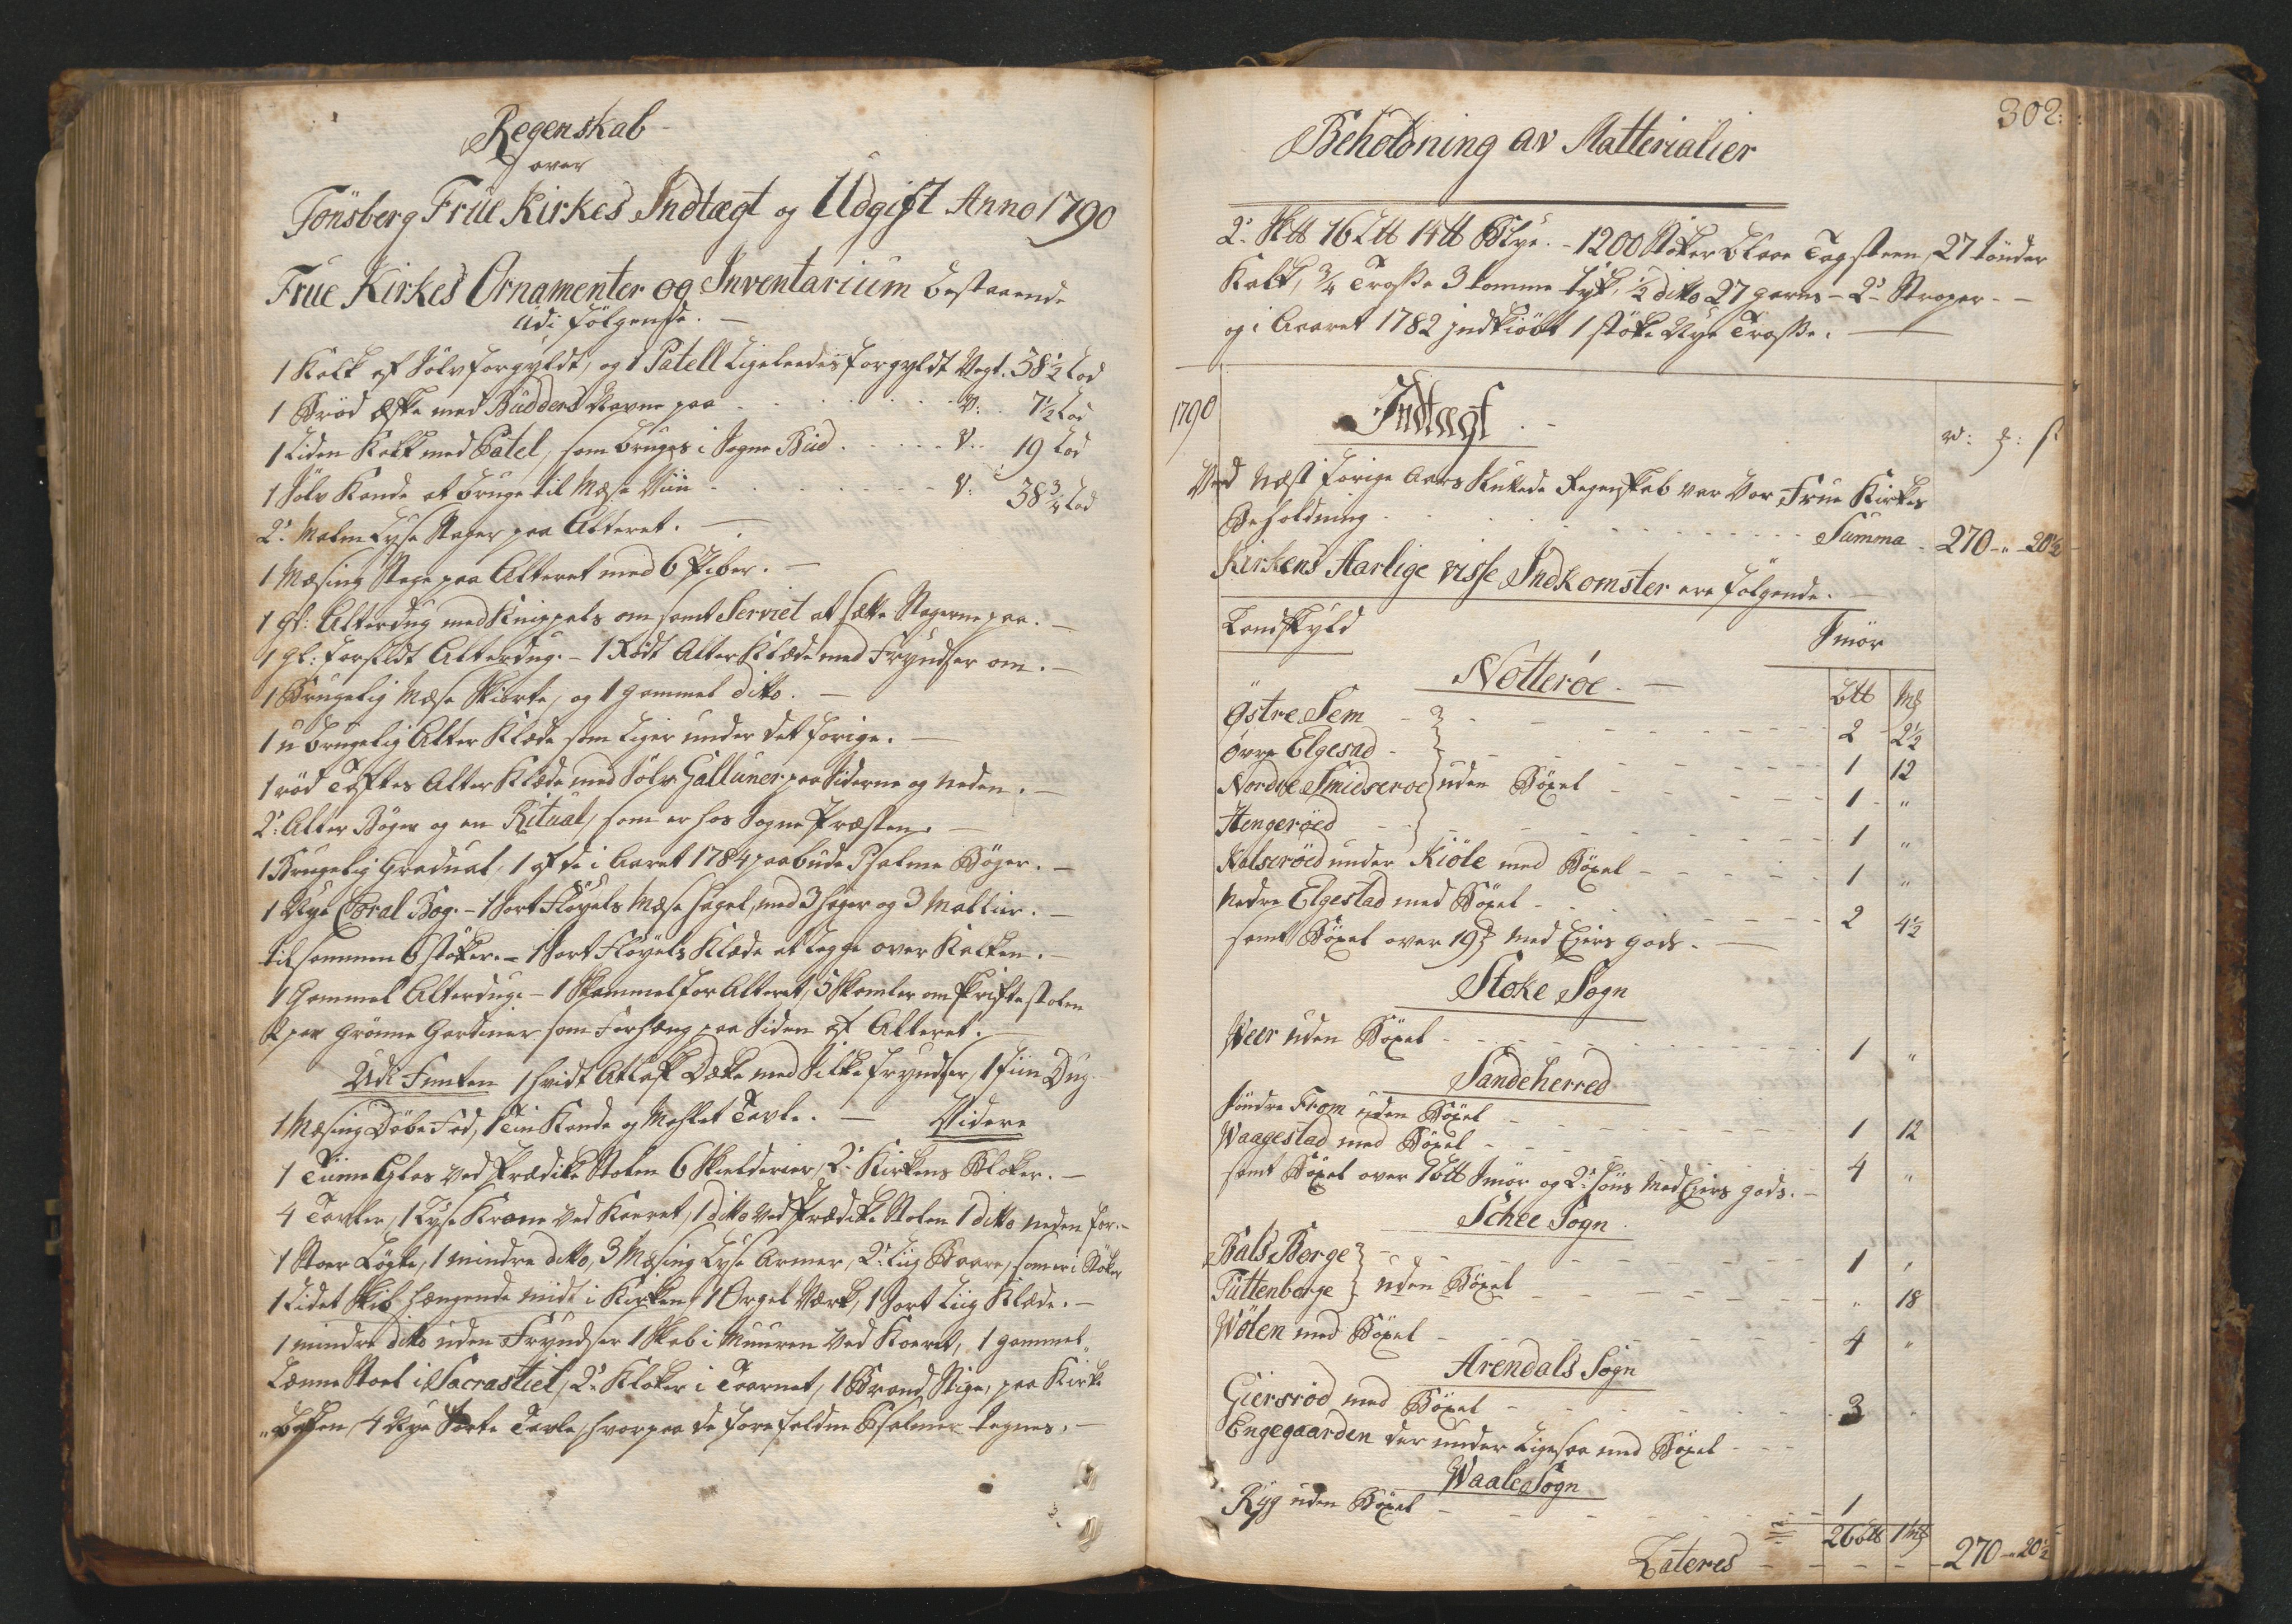 Regenskab
over
Tönsberg Frue Kirkes Indtægt og Udgift Anno 1790
Frue Kirkes Ornamenter og Inventarium bestaaende
udi følgende.
1 Kalk af Sølv forgyldt, og 1 Patell ligeledes forgyldt Vegt. 38½ Lod
1 Brød Æske med Budders Navne paa V. 7½ Lod
1 Liden Kalk med Patel, som bruges i Sogne Bud V. 19 Lod
1 Sølv Kande at bruge til Mæse Viin V. 38¾ Lod
2de Malm Lyse Stager paa Alteret.
1 Mæsing Stage paa Alteret med 6 Piber.
1 gl: Alterdug med Knippels om samt Serviet at sætte Stagerne paa.
1 gl: forsildt Alterdug. - 1 Rødt Alter Klæde med Fryndser om.
1 Brugelig Mæse Skiorte, og 1 gammel ditto.
1 ubrugelig Alter Klæde som liger under det forige.
1 rød Tafftes Alter Klæde med Sølv Galluner paa Siderne og neden.
2de Alter Bøger og en Ritual, som er hos Sogne Præsten.
1 Brugelig Gradual, 1 af de i Aaret 1784 paabude Psalme Bøger.
1 Nye Choral Bog. - 1 Sort Fløyels Mæse Hagel, med 3 Hager og 3 Mallier.
tilsammen 6 støker. - 1 Sort Fløyels Klæde at legge over Kalken.
1 Gammel Alterdug. - 1 Skammel for Alteret, 5 Skamler om Skriftestolen
2 par Grønne Gardiner som Forhæng paa Siden af Alteret.
Udi Funten 1 hvidt Atlask Dække med Silke Fryndser, 1 fiin Dug.
1 Mæsing Døbe Fad, 1 Tin Kande og Mahlet Tavle. Videre
1 Time Glas ved Prædike Stolen 6 Skielderier, 2de Kirkens Bloker.
4 Tavler, 1 Lyse Krone ved Koeret, 1 ditto ved Prædike Stolen 1 ditto neden for.
1 Stoer Løgte, 1 mindre ditto, 3 Mæsing Lyse Armer, 2de Liig Baare, som er i Støker
1 Lidet Skib hængende midt i Kirken, 1 Orgel Værk, 1 Sort Liig Klæde.
1 mindre ditto uden Fryndser 1 Skab i Muuren ved Koeret, 1 gammel
Lænne Stoel i Sacrastiet, 2de Kloker i Taarnet, 1 Brand Stige, paa Kirke
Loften, 4 Nye Sorte Tavle, hvorpaa de forefaldne Psalmer tegnes.
302.
Beholdning av Matterialier
2de Sk℔ 16 L℔ 14 ℔ Blye. - 1200 Støker blaae Tagsteen, 27 tønder
Kalk, ¾ Trosse 3 tomme tyk, ½ ditto 27 garns - 2de Stroper -
og i Aaret 1782 indkiøbt 1 støke Nye Trosse.
1790
Indtægt
rd: ƺ: s
Ved næst forige Aars sluttede Regenskab var Vor Frue Kirkes
Beholdning Summa 270 - " - 20½
Kirkens Aarlige visse Indkomster ere følgende.
Landskyld Smör
Nötteröe. L℔ Mƺ
Östre Sem 2 2½
Øvre Elgesad 1 12
Nordre Smidseroe uden Böxel 1 "
Hengeröed 1 "
Nalseröed under Kiöle med Böxel 1 "
Nedre Elgestad med Böxel 2 4½
samt Böxel over 19 ƺ med Eiers gods.
Stoke Sogn
Weer uden Böxel 1 "
Sandeherred
Söndre From uden Böxel 1 12
Waagestad med Böxel 4 "
samt Böxel over 7 b℔ Smör og 2de huus Med Eiers gods.
Schee Sogn
Bals Berge 1 "
Tuttenberge uden Böxel " 18
Wölen med Böxel 4 "
Arendals Sogn
Giersröd med Böxel 3
Engegaarden der under ligesaa med Böxel
Waale Sogn
Ryg uden Böxel 1
26 b℔ 1 Mƺ
Lateres 270 - " 20½